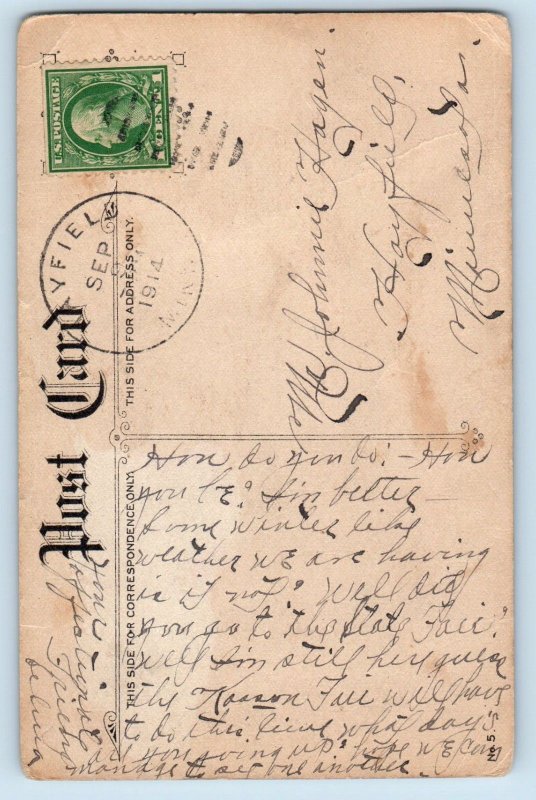 U.S. POSTAGE
1 CENT 1
HAYFIELD
SEP
1914
MINN.
Post Card
THIS SIDE FOR ADDRESS ONLY.
THIS SIDE FOR CORRESPONDENCE ONLY.
Mr Johnnie Hagen.
Hayfield,
Minnesota.
How do you do! - How
you be? I'm better -
Some winter like
weather we are having
is it not? Well did
you go to the State Fair?
Well I'm still here guess
the Kasson Fair will have
to do this time what day's
are you going up? hope we can
manage to see one another.
Your
affectionate
Friend
No 5